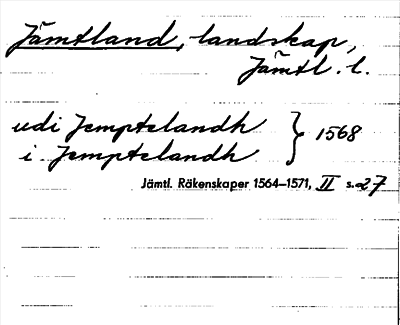 Jämtland, landskap,
Jämtl. l.
udi Jemptelandh } 1568
i Jemptelandh
Jämtl. Räkenskaper 1564–1571, II s. 27